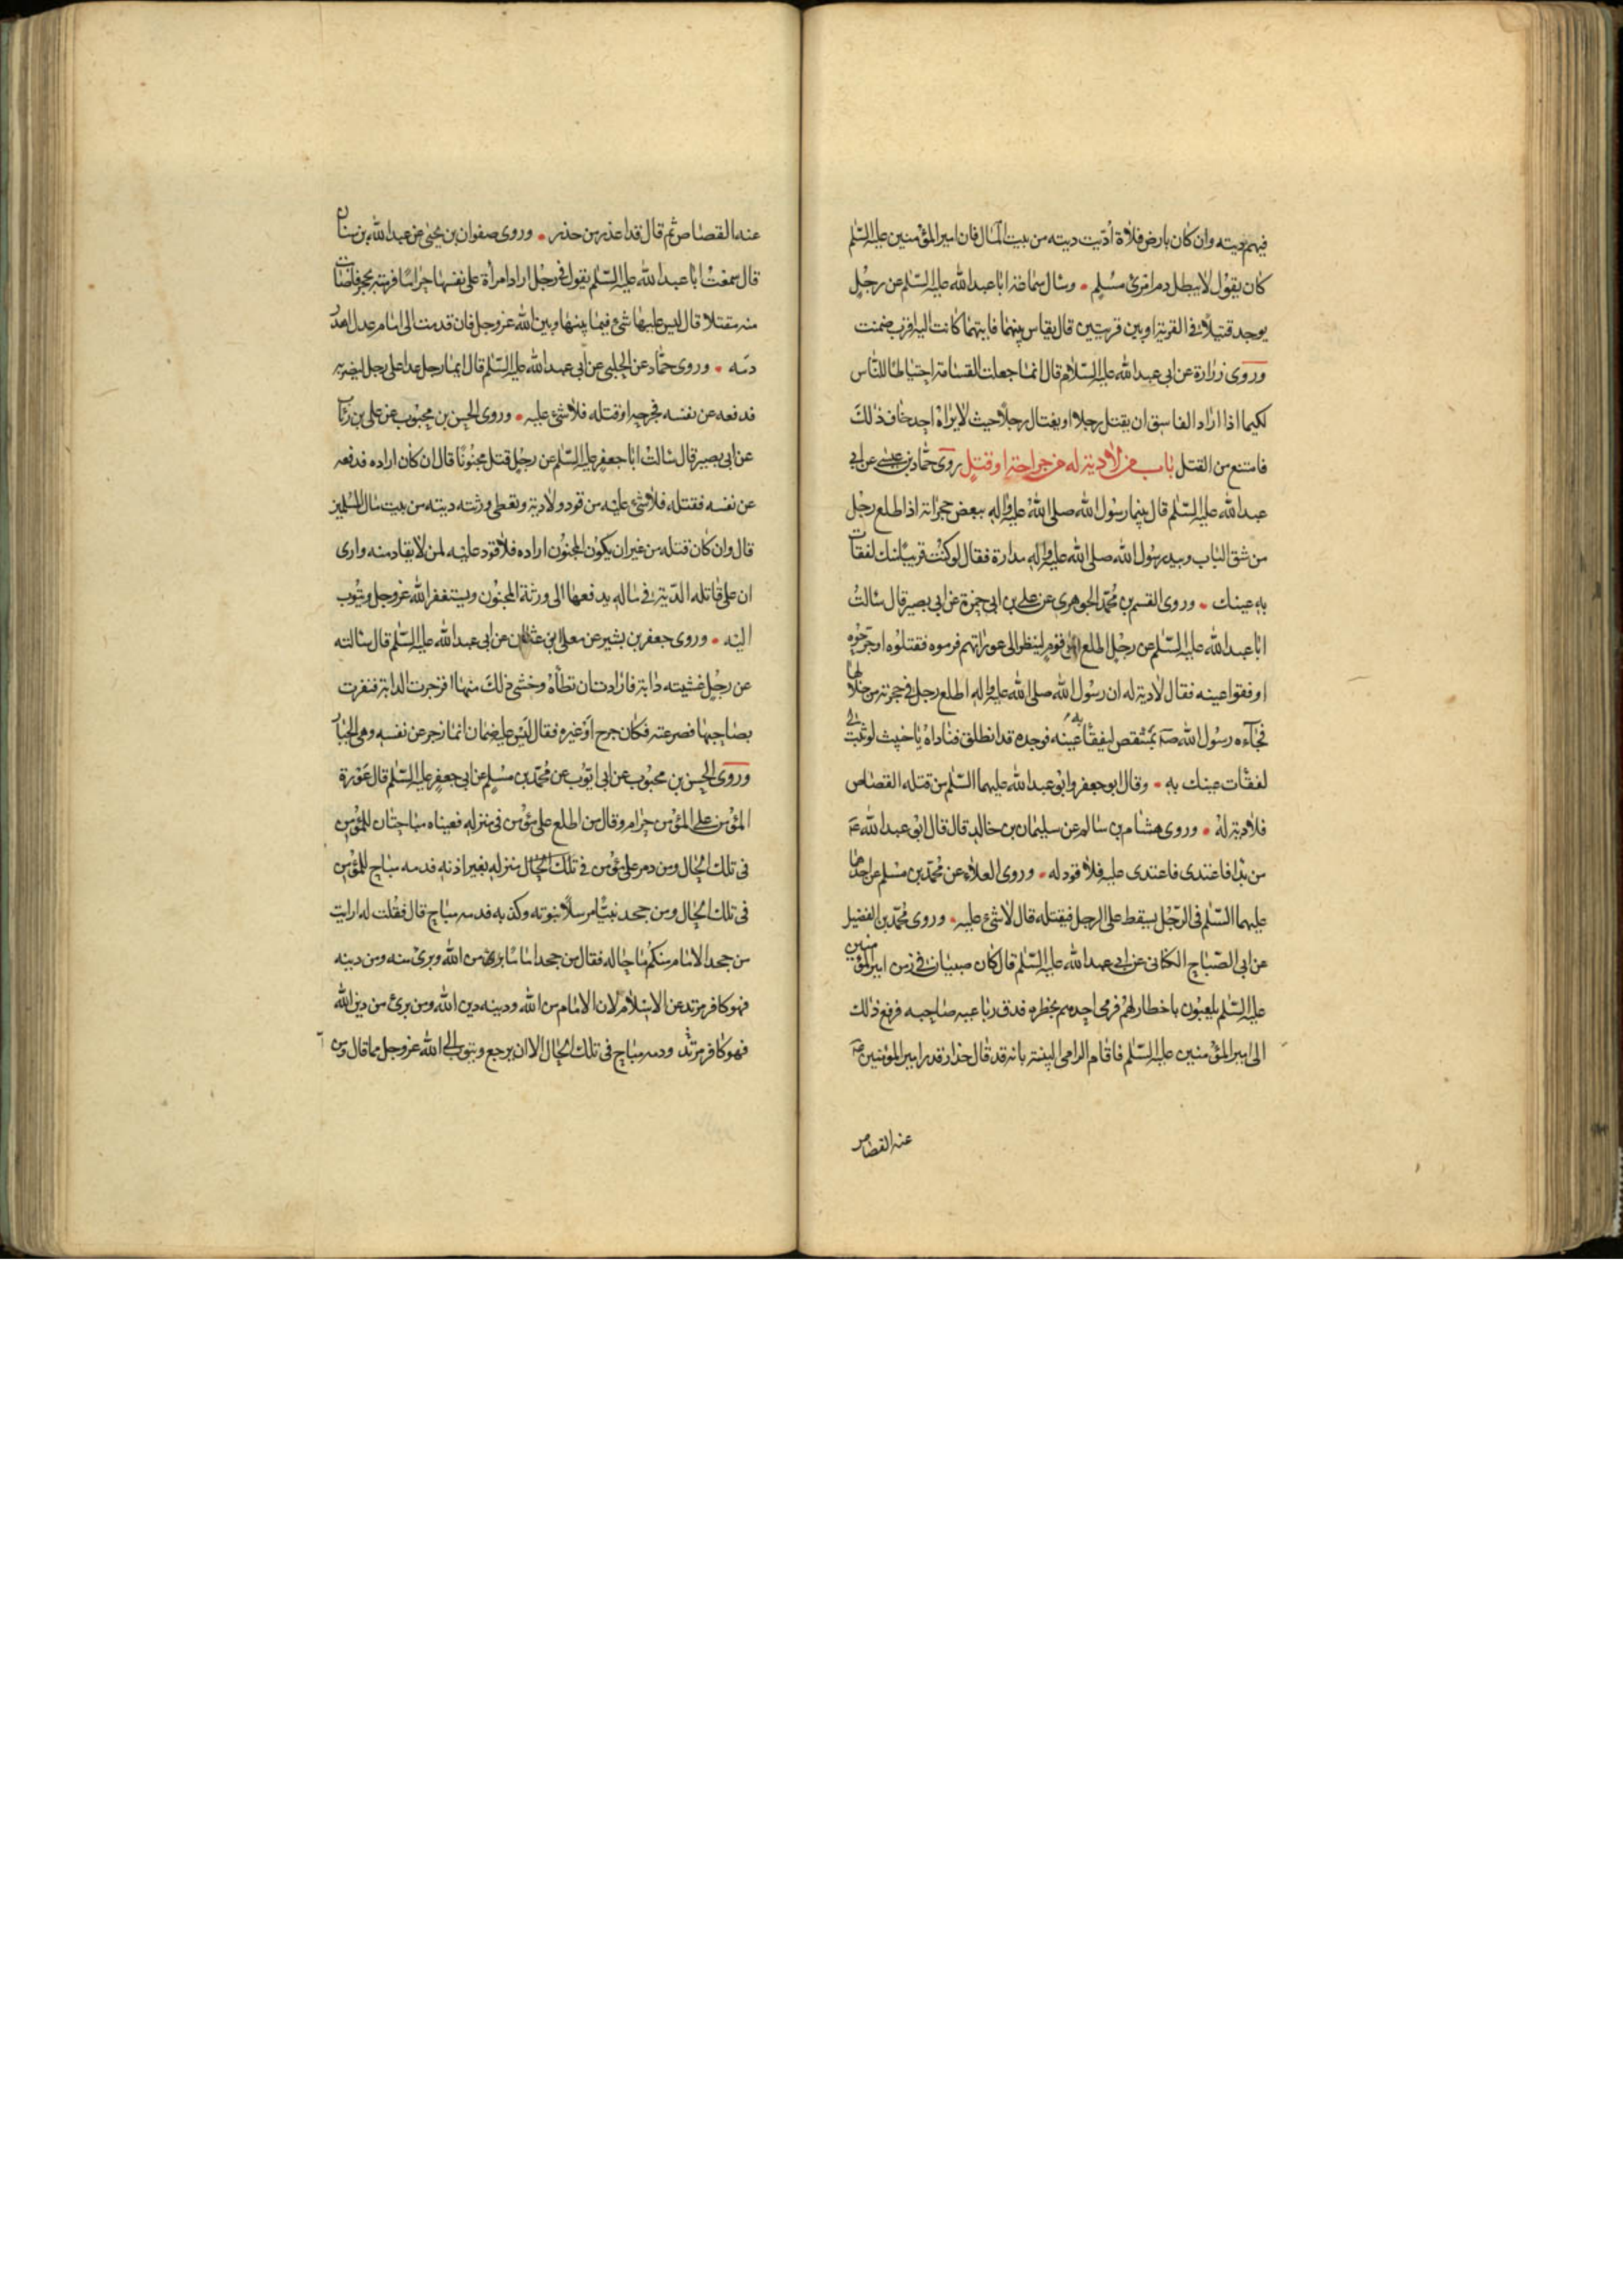 فيهم ديته وان كان بارض فلاة أدّيت ديته من بيت المال فان امير المؤمنين عليه السّلم
كان يقول لا يبطل دم امرئ مسلم • وسال سماعة ابا عبد الله عليه السّلم عن رجل
يوجد قتيلا في القرية او بين قريتين قال يقاس بينهما فايتهما كانت اليه اقرب ضمنت
وروى زرارة عن ابى عبد الله عليه السّلام قال انما جعلت القسامة احتياطا للنّاس
لكيما اذا اراد الفاسق ان يقتل رجلا او يغتال رجلا حيث لا يراه احد خاف ذلك
فامتنع من القتل باب من لا دية له من جراحة او قتل روى حمّاد بن عيسى عن ابى
عبد الله عليه السّلم قال بينما رسول الله صلى الله عليه واله ببعض حجراته اذا طلع رجل
من شق الباب وبيد رسول الله صلى الله عليه واله مدارة فقال لو كنت قريبا منك لفقات
به عينك • وروى القسم بن محمّد الجوهرى عن على بن ابى حمزة عن ابى بصير قال سالت
ابا عبد الله عليه السّلم عن رجل اطلع على قوم لينظر الى عوراتهم فرموه فقتلوه او جرّحوه
او فقوا عينه فقال لا دية له ان رسول الله صلى الله عليه واله اطلع رجل في حجرته من خلالها
فجآءه رسول الله صه بمشقص ليفقأ به عينه فوجده قد انطلق فناداه يا خبيث لو ثبتّ لي
لفقأت عينك به • وقال ابو جعفر وابو عبد الله عليهما السّلم من قتله القصاص
فلا دية له • وروى هشام بن سالم عن سليمان بن خالد قال قال ابو عبد الله عه
من بدا فاعتدى فاعتدى عليه فلا قود له • وروى العلاء عن محمّد بن مسلم عن احدهما
عليهما السّلم في الرّجل يسقط على الرجل فيقتله قال لا شئ عليه • وروى محمّد بن الفضيل
عن ابى الصّباح الكنانى عن ابى عبد الله عليه السّلم قال كان صبيان في زمن امير المؤمنين
عليه السّلم يلعبون باخطار لهم فرمى احدهم بخطره فدق رباعية صاحبه فرفع ذلك
الى امير المؤمنين عليه السّلم فاقام الرامى البينة بانه قد قال حذار فدرا امير المؤمنين عه
عنه القصاص
عنه القصاص ثم قال قد اعذر من حذر • وروى صفوان بن يحيى عن عبد الله بن سنان
قال سمعت ابا عبد الله عليه السّلم يقول في رجل اراد امراة على نفسها حراما فرمته بحجر فاصابت
منه مقتلا قال ليس عليها شئ فيما بينها وبين الله عز وجل فان قدمت الى امام عدل اهدر
دمه • وروى حمّاد عن الحلبى عن ابى عبد الله عليه السّلم قال ايما رجل عدا على رجل ليضربه
فدفعه عن نفسه فجرحه او قتله فلا شئ عليه • وروى الحسن بن محبوب عن على بن رئاب
عن ابى بصير قال سالت ابا جعفر عليه السّلم عن رجل قتل مجنونا قال ان كان اراده فدفعه
عن نفسه فقتله فلا شئ عليه من قود ولا دية ويعطى ورثته ديته من بيت مال المسلمين
قال وان كان قتله من غير ان يكون المجنون اراده فلا قود عليه لمن لا يقاد منه وارى
ان على قاتله الدّية في ماله يدفعها الى ورثة المجنون ويستغفر الله عز وجل ويتوب
اليه • وروى جعفر بن بشير عن معلى ابن عثمان عن ابى عبد الله عليه السّلم قال سالته
عن رجل غشيته دابة فارادت ان تطأه وخشى ذلك منها فزجرت الدابة فنفرت
بصاحبها فصرعته فكان جرح او غيره فقال ليس عليه ضمان انما زجر عن نفسه وهى الجبار
وروى الحسن بن محبوب عن ابى ايّوب عن محمّد بن مسلم عن ابى جعفر عليه السّلم قال عورة
المؤمن على المؤمن حرام وقال من اطلع على مؤمن في منزله فعيناه مباحتان للمؤمن
في تلك الحال ومن دمر على مؤمن في منزله بغير اذنه فدمه مباح للمؤمن
في تلك الحال ومن جحد نبيّا مرسلا نبوته وكذبه فدمه مباح قال فقلت له ارايت
من جحد الامام منكم ما حاله فقال من جحد اماما برئ من الله وبرئ منه ومن دينه
فهو كافر مرتد عن الاسلام لان الامام من الله ودينه دين الله ومن برئ من دين الله
فهو كافر مرتد ودمه مباح في تلك الحال الا ان يرجع ويتوب الى الله عز وجل مما قال ومن